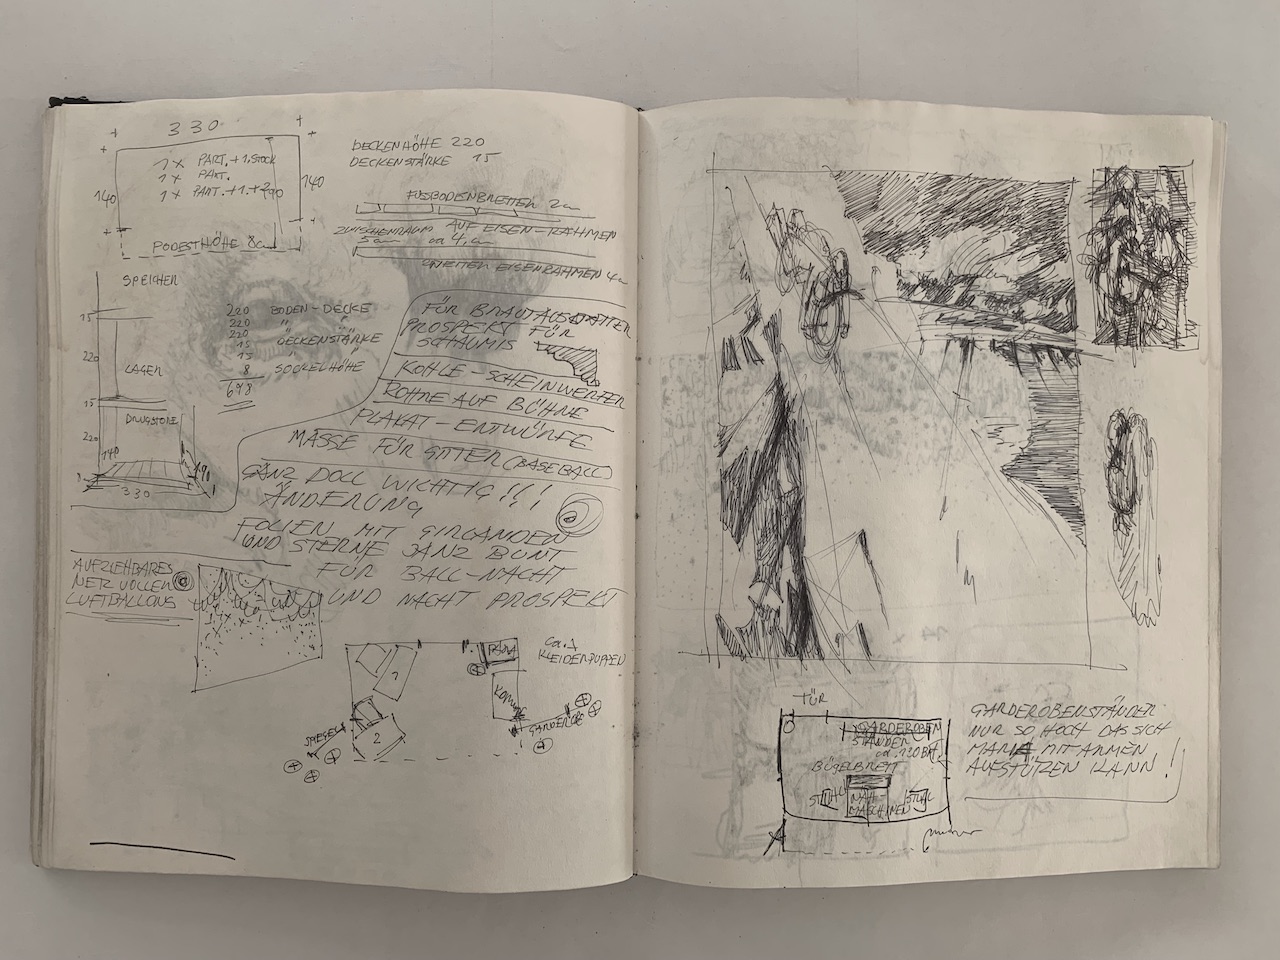 330
1 x PART. + 1. STOCK
1 x PART.
1 x PART. + 1. +
140
140
PODESTHÖHE 8cm
DECKENHÖHE 220
DECKENSTÄRKE 15
FUSSBODENBRETTER 2cm
ZWISCHENRAUM AUF EISEN-RAHMEN
5cm ca 4cm
EISENRAHMEN 4cm
SPEICHER
15
220
LAGER
15
DRUGSTORE
220
140
8
330
220 BODEN-DECKE
220 "
220 "
15 DECKENSTÄRKE
15 "
8 SOCKELHÖHE
698
FÜR BRAUTAUSSTATTER
PROSPEKT FÜR
SCHAUMIS
KOHLE-SCHEINWERFER
ROHNE AUF BÜHNE
PLAKAT ENTWÜRFE
MASSE FÜR GITTER (BASEBALL)
GANZ DOLL WICHTIG!!!
ÄNDERUNG
FOLIEN MIT GIRLANDEN
UND STERNE GANZ BUNT
FÜR BALL-NACHT
UND NACHT PROSPEKT
AUFZIEHBARES
NETZ VOLLER
LUFTBALLONS
ca. 1
KLEIDERPUPPEN
1
2
SPIEGEL
GARDEROBE
TÜR
GARDEROBEN
STÄNDER
ca. 120
BÜGELBRETT
STUHL
NÄH
MASCHINEN
STUHL
GARDEROBENSTÄNDER
NUR SO HOCH DAS SICH
MARIE MIT ARMEN
AUFSTÜTZEN KANN!